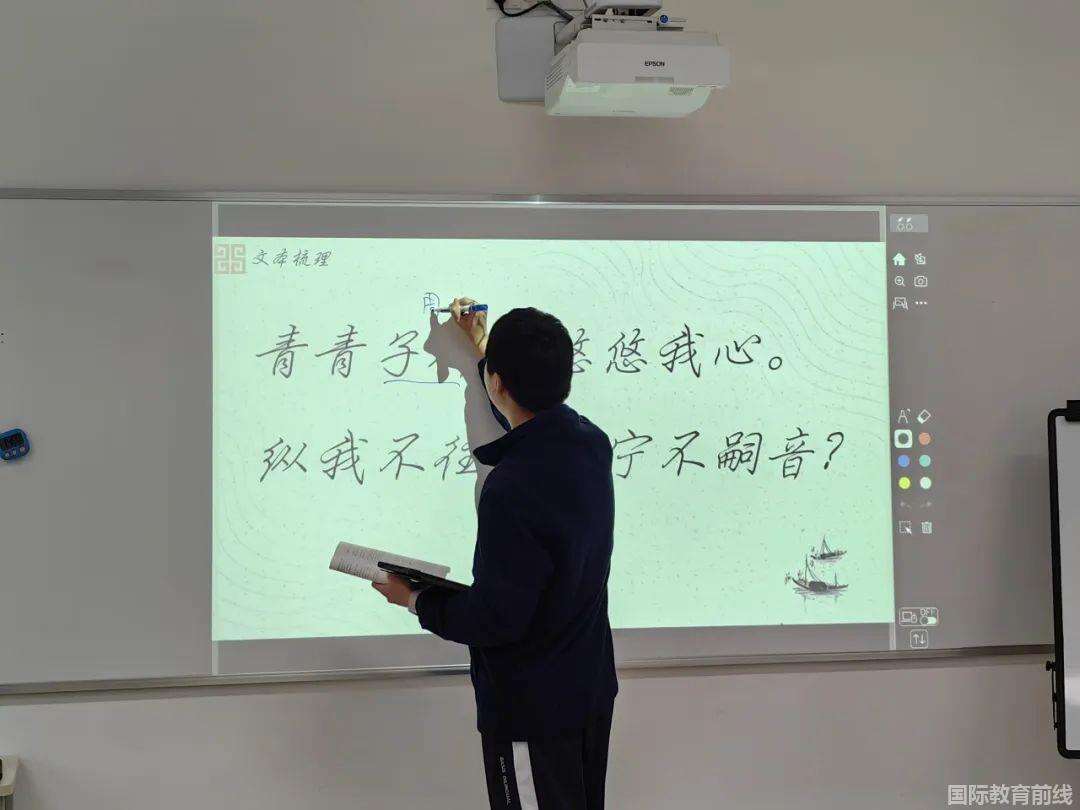 EPSON
文本梳理
用
青青子 悠悠我心。
纵我不往 宁不嗣音？
OFF
国际教育前线